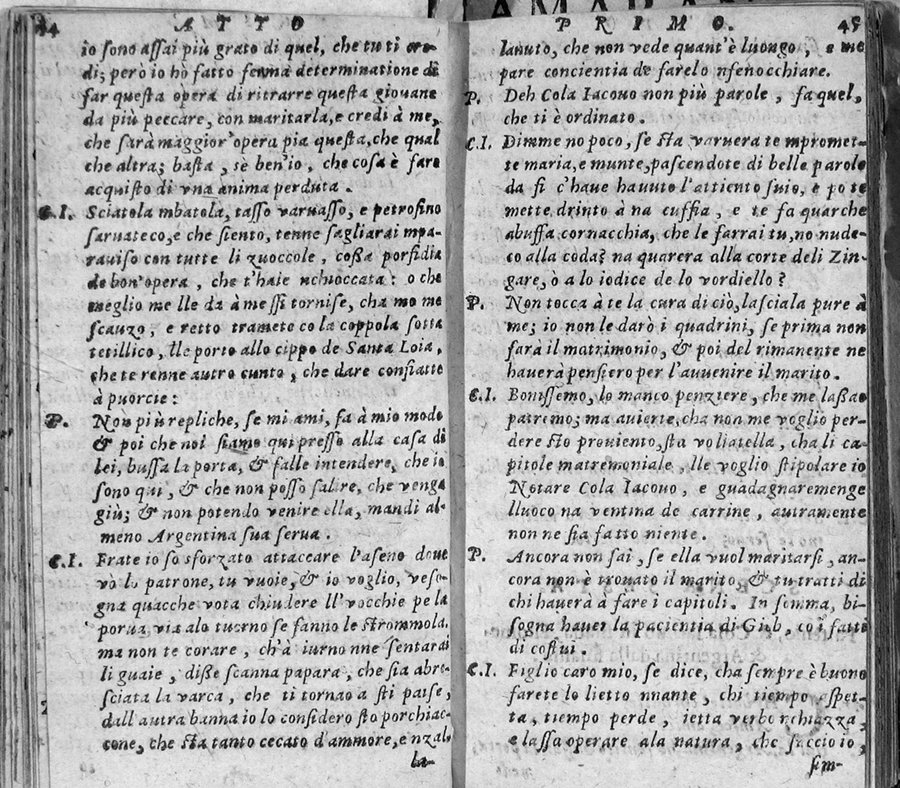 44 ATTO
io sono assai più grato di quel, che tu ti cre-
di; però io hò fatto ferma determinatione di
far questa opera di ritrarre questa giouane
da più peccare, con maritarla, e credi à me,
che sarà maggior'opera pia questa, che qual
che altra; basta, sè ben'io, che cosa è fare
acquisto di vna anima perduta.
C.I. Sciatola mbatola, tasso varuasso, e petrosino
saruateco, e che siento, tenne sagliarai mpa-
rauiso con tutte li zuoccole, coßa porfidia
de bon'opera, che t'haie nchioccata: o che
meglio me lle da à messi tornise, cha mo me
scauzo, e retto trameto co la coppola sotta
tetillico, lle porto allo cippo de Santa Loia,
che te renne autro cunto, che dare consiatto
à puorcie:
P. Non più repliche, se mi ami, fa à mio modo
& poi che noi siamo qui presso alla casa di
lei, bussa la porta, & falle intendere, che io
sono qui, & che non posso salire, che venga
giù; & non potendo venire ella, mandi al-
meno Argentina sua serua.
C.I. Frate io so sforzato attaccare l'aseno doue
vò lo patrone, tu vuoie, & io voglio, veso-
gna quacche vota chiudere ll'vocchie pe la
porua via a lo tuorno se fanno le strommola,
ma non te corare, ch'à iurno nne sentarai
li guaie, diße scanna papara, che sia abre-
sciata la varca, che ti torna o a sti paise,
dall'autra banna io lo considero sto porchiac-
cone, che sta tanto cecato d'ammore, e nzala-
la-
PRIMO. 45
lanuto, che non vede quant'è luongo, e me
pare concientia de farelo nfenocchiare.
P. Deh Cola Iacouo non più parole, fa quel,
che ti è ordinato.
C.I. Dimme no poco, se sta varuera te mpromet-
te maria, e munte, pascendote di belle parole
da fi c'haue hauuto l'attiento suio, e po te
mette drinto à na cuffia, e te fa quarche
abuffa cornacchia, che le farrai tu, no nude-
co alla coda? na quarera alla corte deli Zin-
gare, ò a lo iodice de lo vordiello?
P. Non tocca à te la cura di ciò, lasciala pure à
me; io non le darò i quadrini, se prima non
farà il matrimonio, & poi del rimanente ne
hauerà pensiero per l'auuenire il marito.
C.I. Bonissemo, lo manco penziere, che me laßao
patremo; ma auierte, cha non me voglio per-
dere sto prouiento, sta voliatella, cha li ca-
pitole matremoniale, lle voglio stipolare io
Notare Cola Iacouo, e guadagnaremenge
lluoco na ventina de carrine, autramente
non ne sia fatto niente.
P. Ancora non sai, se ella vuol maritarsi, an-
cora non è trouato il marito, & tu tratti di
chi hauerà à fare i capitoli. In somma, bi-
sogna hauer la pacientia di Giob, co i fatti
di costui.
C.I. Figlio caro mio, se dice, cha sempre è buono
farete lo lietto nnante, chi tiempo aspet-
ta, tiempo perde, ietta verbo nchiazza,
e lassa operare a la natura, che faccio io,
sim-